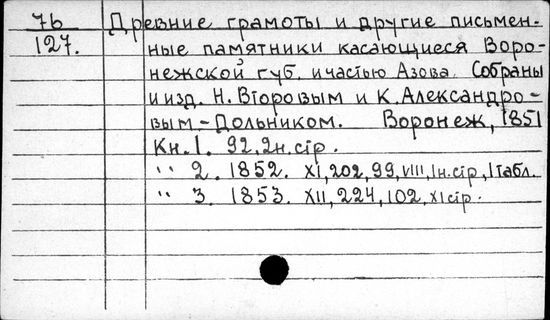 76 Древние грамоты и другие письмен-
127. ные памятники касающиеся Воро-
нежской губ. и частью Азова. Собраны
и изд. Н. Второвым и К. Александро-
вым-Дольником. Воронеж, 1851
Кн. 1. 92. 2н. стр.
" 2. 1852. XI, 202, 99, VIII, 1н. стр, 1 табл.
" 3. 1853. XII, 224, 102, XI стр.